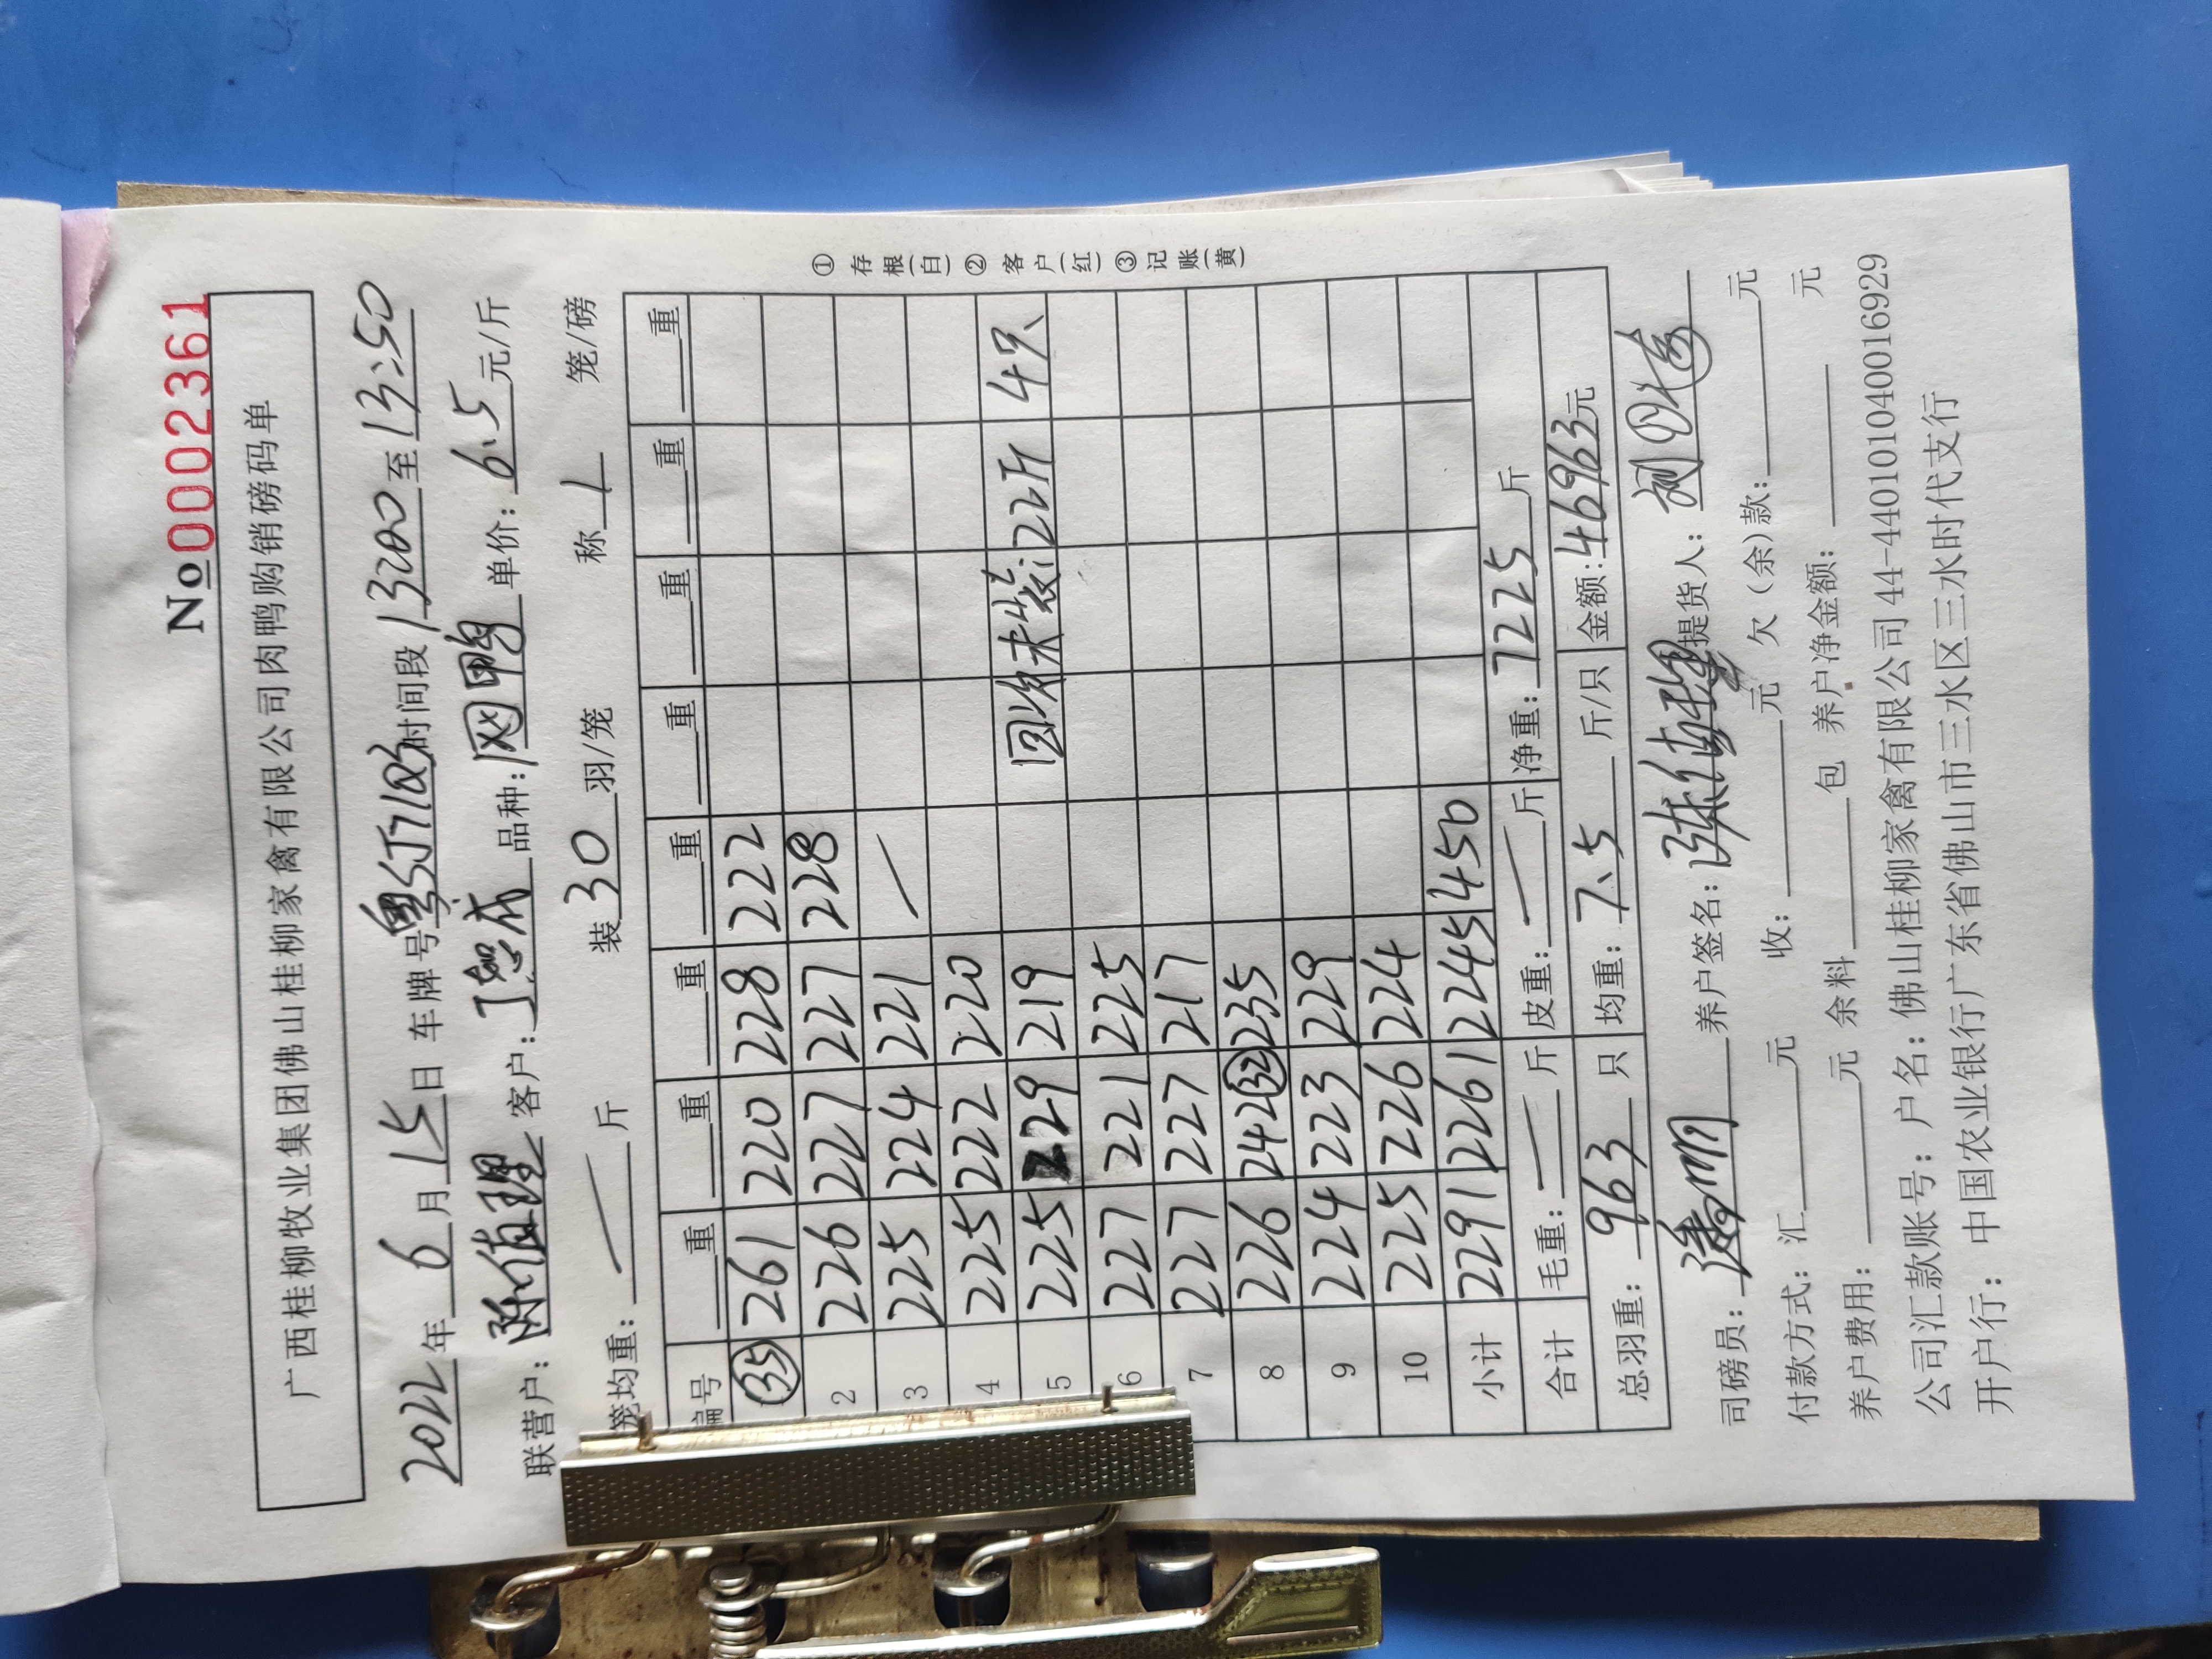 No 0002361
广西桂柳牧业集团佛山桂柳家禽有限公司肉鸭购销磅码单
2022年 6 月 15 日 车牌号 时间段 13:00 至 13:50
联营户: 客户: 品种: 网鸭 单价: 6.5 元/斤
笼均重: 斤 装 30 羽/笼 称 1 笼/磅
编号 重 重 重 重 重 重 重 重
(35) 261 220 228 222
2 226 227 227 228
3 225 224 221
4 225 222 220
5 225 229 219 回付未装:22斤 4只
6 227 221 225
7 227 227 217
8 226 242 (32) 235
9 224 223 229
10 225 226 224
小计 2291 2261 2245 450
合计 毛重: 斤 皮重: 斤 净重: 7225 斤
总羽重: 963 只 均重: 7.5 斤/只 金额: 46963元
司磅员: 养户签名: 提货人:
付款方式: 汇 元 收: 元 欠(余)款: 元
养户费用: 元 余料 包 养户净金额: 元
公司汇款账号: 户名: 佛山桂柳家禽有限公司 44-440101040016929
开户行: 中国农业银行广东省佛山市三水区三水时代支行
① 存根(白) ② 客户(红) ③ 记账(黄)